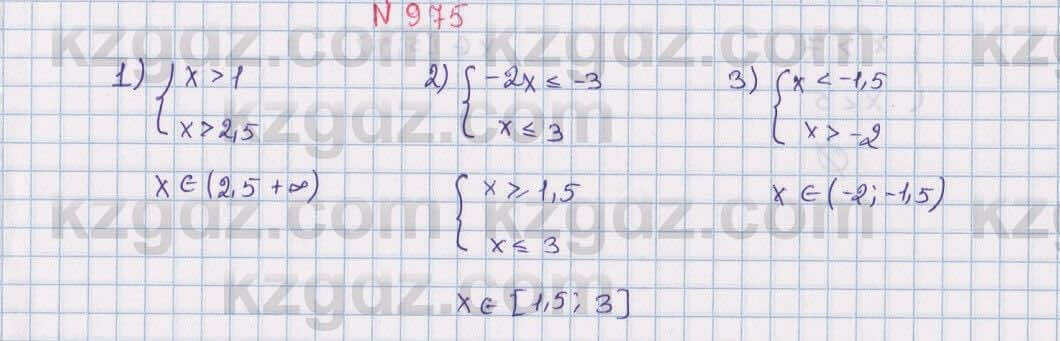 N 975
1) { x > 1
x > 2,5
x ∈ (2,5 +∞)
2) { -2x ≤ -3
x ≤ 3
{ x ≥ 1,5
x ≤ 3
x ∈ [1,5; 3]
3) { x < -1,5
x > -2
x ∈ (-2; -1,5)
kzgdz.com kzgdz.com kz
kzgdz.com
kzgdz.com kzgdz.com kz
kzgdz.com